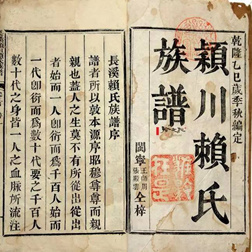 乾隆乙巳歲季秋編定
潁川賴氏
族譜
閩寧
仝梓
長溪賴氏族譜序
譜者所以敦本源序昭穆尊尊而親
親也蓋人之生莫不有所從出從出
者始而一人卽衍而爲千百人
一代卽衍而爲數十代要之千百人
數十代之身皆一人之血脈所流注